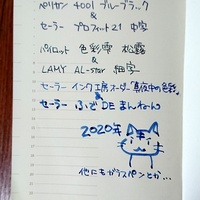 ペリカン 4001 ブルーブラック
&
セーラー プロフィット21 中字
パイロット 色彩雫 松露
&
LAMY AL-star 細字
セーラー インク工房オーダー「真夜中の色彩」
&
セーラー ふでDEまんねん
2020年
他にもガラスペンとか…